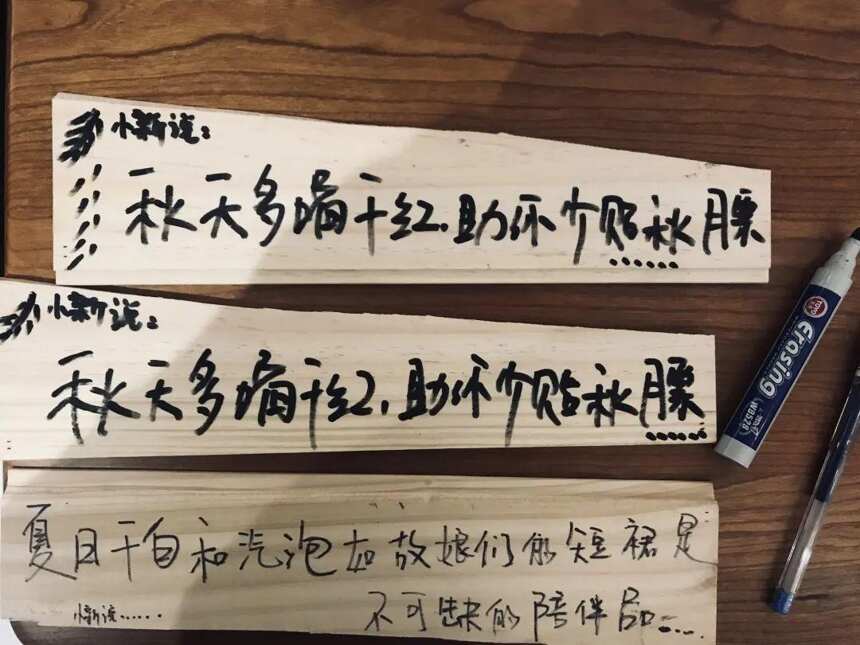 小新说：
秋天多喝干红，助你少贴秋膘
小新说：
秋天多喝干红，助你少贴秋膘
夏日干白和汽泡如故娘们的短裙是
不可缺的陪伴品....
小新说......
TOYO
Erasing
WB528